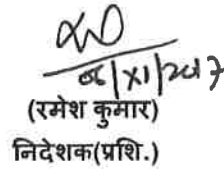 06/XI/2017
(रमेश कुमार)
निदेशक(प्रशि.)